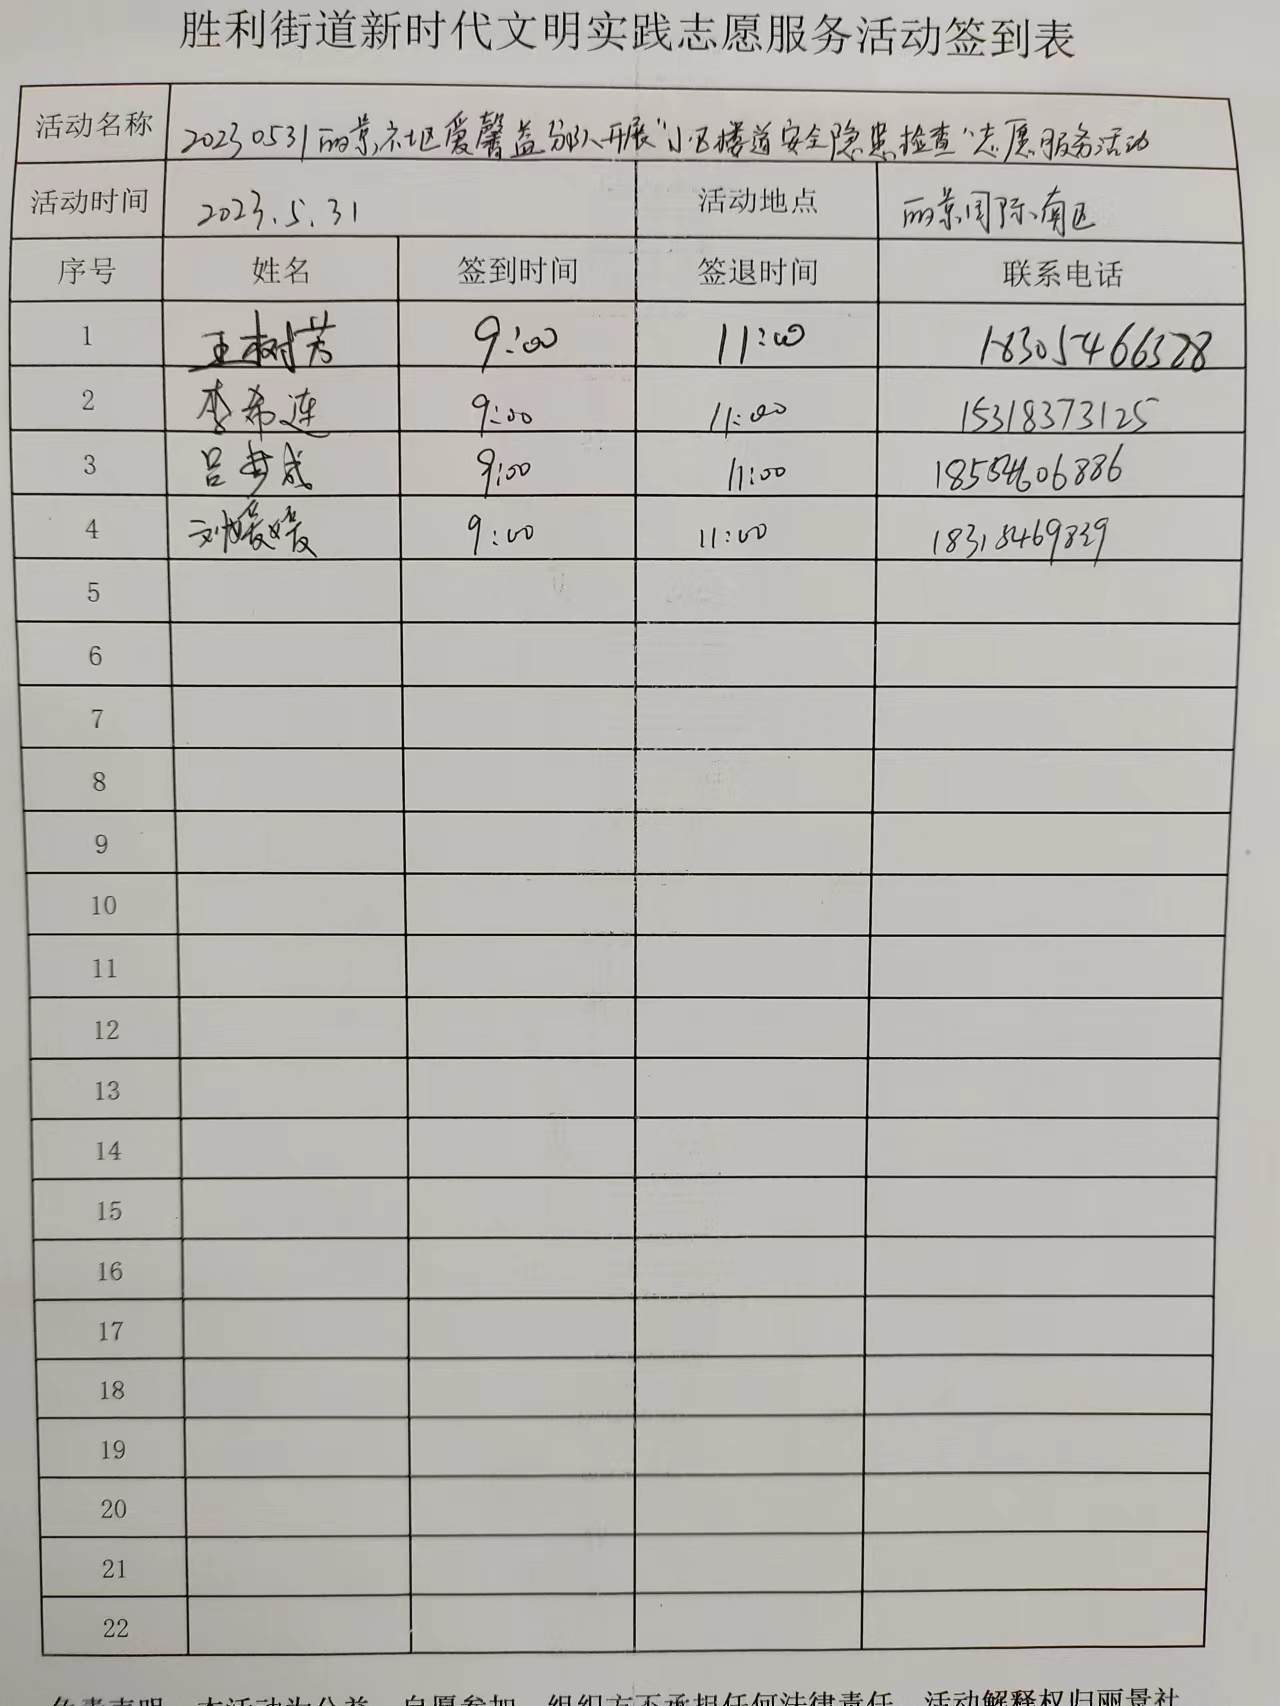 胜利街道新时代文明实践志愿服务活动签到表
活动名称 20230531丽景社区爱馨益分队开展"小区楼道安全隐患检查"志愿服务活动
活动时间 2023.5.31 活动地点 丽景国际南区
序号 姓名 签到时间 签退时间 联系电话
1 王树芳 9:00 11:00 18305466328
2 李希连 9:00 11:00 15318373125
3 吕 成 9:00 11:00 18554606886
4 刘媛媛 9:00 11:00 18318469839
5
6
7
8
9
10
11
12
13
14
15
16
17
18
19
20
21
22
本活动为公益 自愿参加 组织方不承担任何法律责任 活动解释权归丽景社